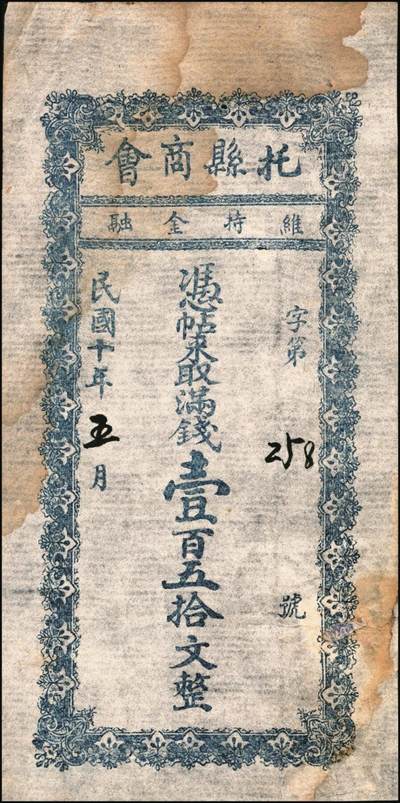 托縣商會
維持金融
字第
258
號
憑帖來取滿錢壹百五拾文整
民國十年五月